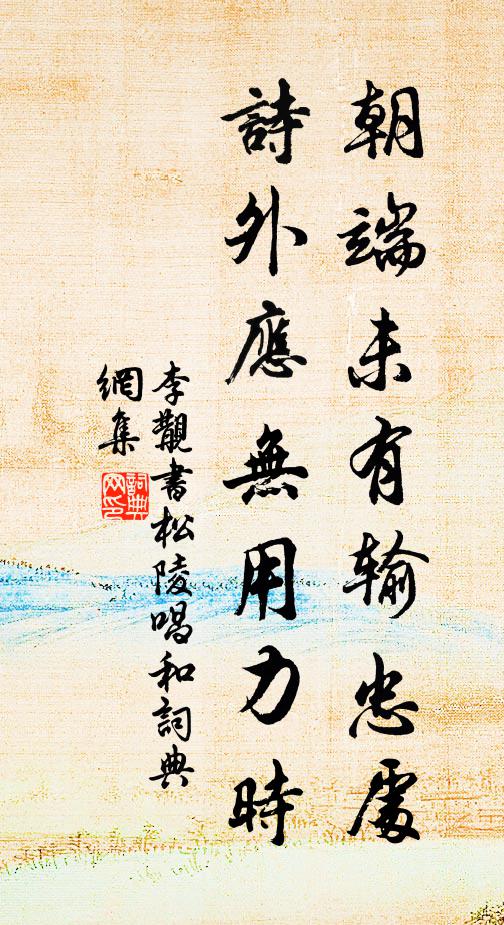 朝端未有輸忠處
詩外應無用力時
李觀書松陵唱和詞典
網集
詞典
网印